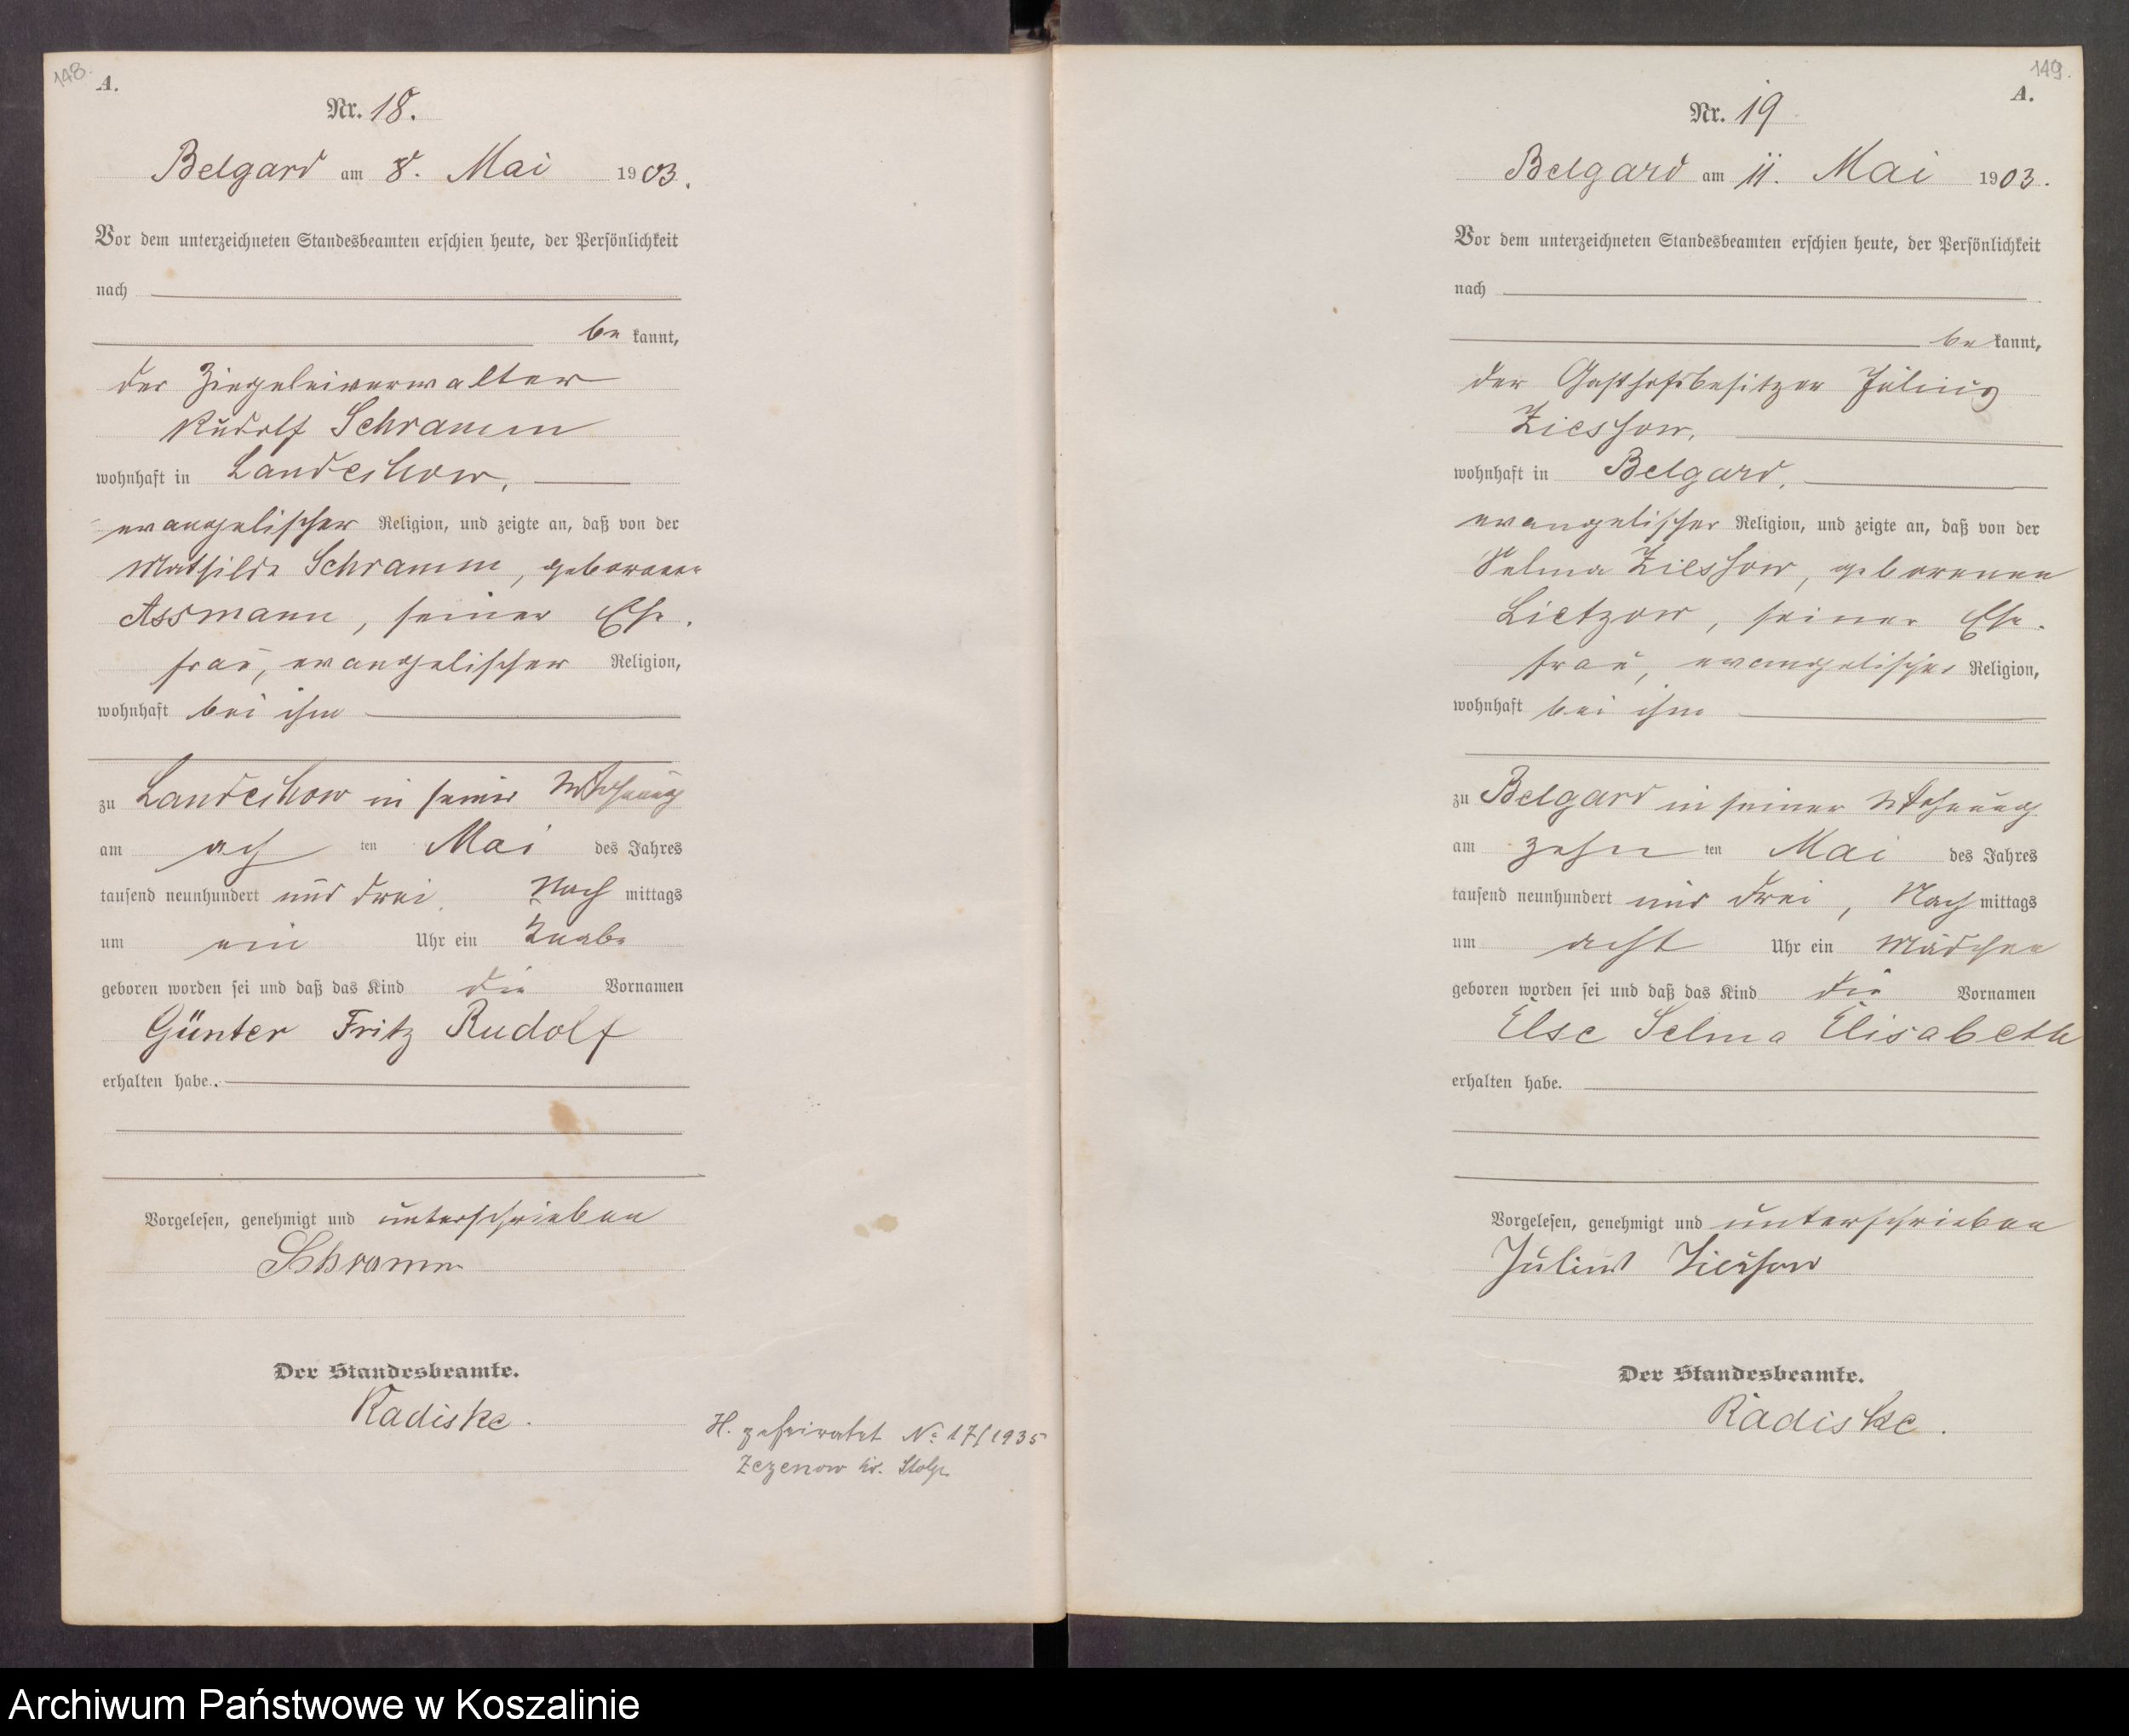 148.
A.
Nr. 18.
Belgard am 8. Mai 1903.
Vor dem unterzeichneten Standesbeamten erschien heute, der Persönlichkeit
nach
be kannt,
der Ziegeleiverwalter
Rudolf Schramm
wohnhaft in Landechow,
evangelischer Religion, und zeigte an, daß von der
Mathilde Schramm, geborenen
Assmann, seiner Ehe-
frau, evangelischer Religion,
wohnhaft bei ihm
zu Landechow in seiner Wohnung
am ach ten Mai des Jahres
tausend neunhundert und drei, Nach mittags
um ein Uhr ein Knabe
geboren worden sei und daß das Kind die Vornamen
Günter Fritz Rudolf
erhalten habe.
Vorgelesen, genehmigt und unterschrieben
Schramm
Der Standesbeamte.
Radiske.
H. geheiratet No 17/1935
Zezenow Kr. Stolp.
149.
A.
Nr. 19
Belgard am 11. Mai 1903.
Vor dem unterzeichneten Standesbeamten erschien heute, der Persönlichkeit
nach
be kannt,
der Gasthofsbesitzer Julius
Ziessow,
wohnhaft in Belgard,
evangelischer Religion, und zeigte an, daß von der
Selma Ziessow, geborenen
Lietzow, seiner Ehe-
frau, evangelischer Religion,
wohnhaft bei ihm
zu Belgard in seiner Wohnung
am zehn ten Mai des Jahres
tausend neunhundert und drei, Nach mittags
um acht Uhr ein Mädchen
geboren worden sei und daß das Kind die Vornamen
Else Selma Elisabeth
erhalten habe.
Vorgelesen, genehmigt und unterschrieben
Julius Ziessow
Der Standesbeamte.
Radiske.
Archiwum Państwowe w Koszalinie